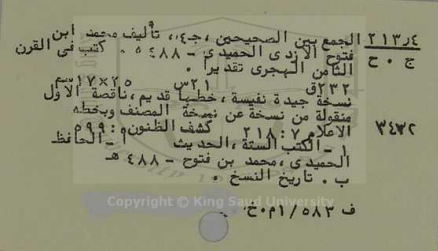 ٢١٣٫٤ الجمع بين الصحيحين ،جـ٤،، تأليف محمد ابن
ج ٠ ح فتوح الأزدى الحميدى - ٤٨٨هـ ٠ كتب فى القرن
الثامن الهجرى تقديرا ٠
٢٣٢ق ٢١س ٢٥×١٧سم
نسخة جيدة نفيسة ، خطها قديم ،ناقصة الأول
منقولة من نسخة عن نسخة المصنف وبخطه
٣٤٣٢ الاعلام ٧ : ٢١٨ كشف الظنون: ٥٩٩
١ - الكتب الستة ،الحديث أ - الحافظ
الحميدى ،محمد بن فتوح - ٤٨٨ هـ
ب ٠ تاريخ النسخ ٠
Copyright © King Saud University
ف ١/٥٨٣م٠خ